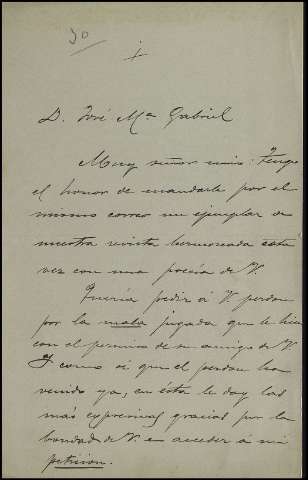 30
+
D. José Mª Gabriel
Muy señor mio: Tengo
el honor de mandarle por el
mismo correo un ejemplar de
nuestra revista hermoseada esta
vez con una poesía de V.
Quería pedir á V. perdon
por la mala jugada que le hice
con el permiso de su amigo de V.
Y como si que el perdon ha
venido ya, en esta le doy las
más expresivas gracias por la
bondad de V. en acceder á mi
peticion.